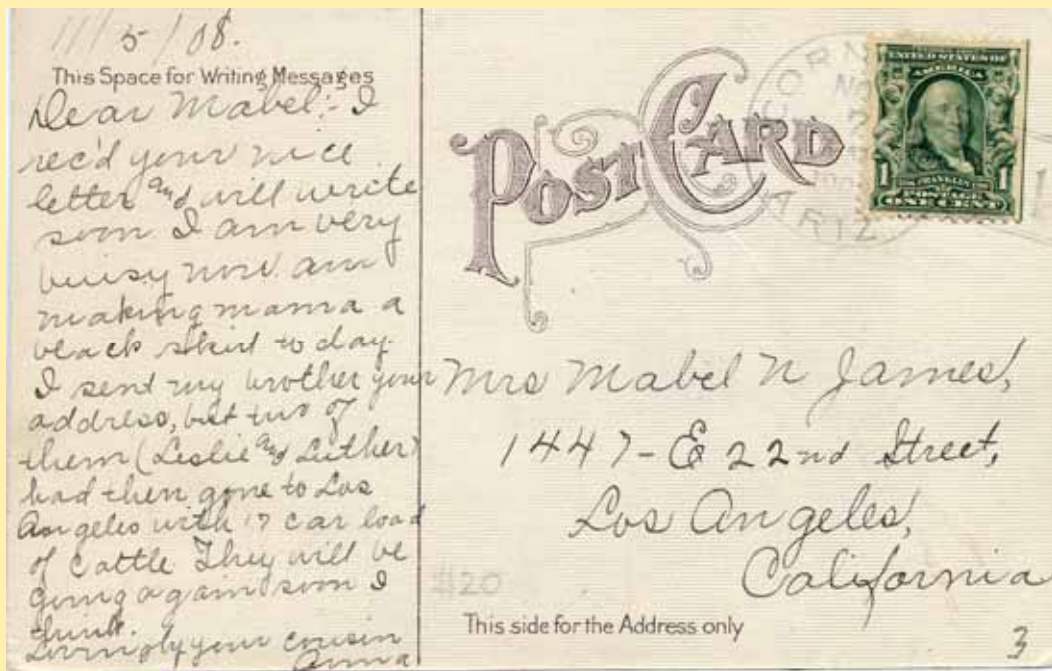 11/5/08.
This Space for Writing Messages
Dear Mabel:- I
rec'd your nice
letter and will write
soon I am very
buisy now. am
making mama a
black skirt to day.
I sent my brother your
address, but two of
them (Leslie and Luther)
had then gone to Los
Angeles with 17 car load
of Cattle They will be
going again soon I
think.
Lovingly your cousin
Anna
POST CARD
CORN
NO
ARIZ
UNITED STATES OF
AMERICA
1 FRANKLIN 1
POSTAGE
ONE CENT
Mrs Mabel N James,
1447-E 22nd Street,
Los Angeles,
California
$20
This side for the Address only
3